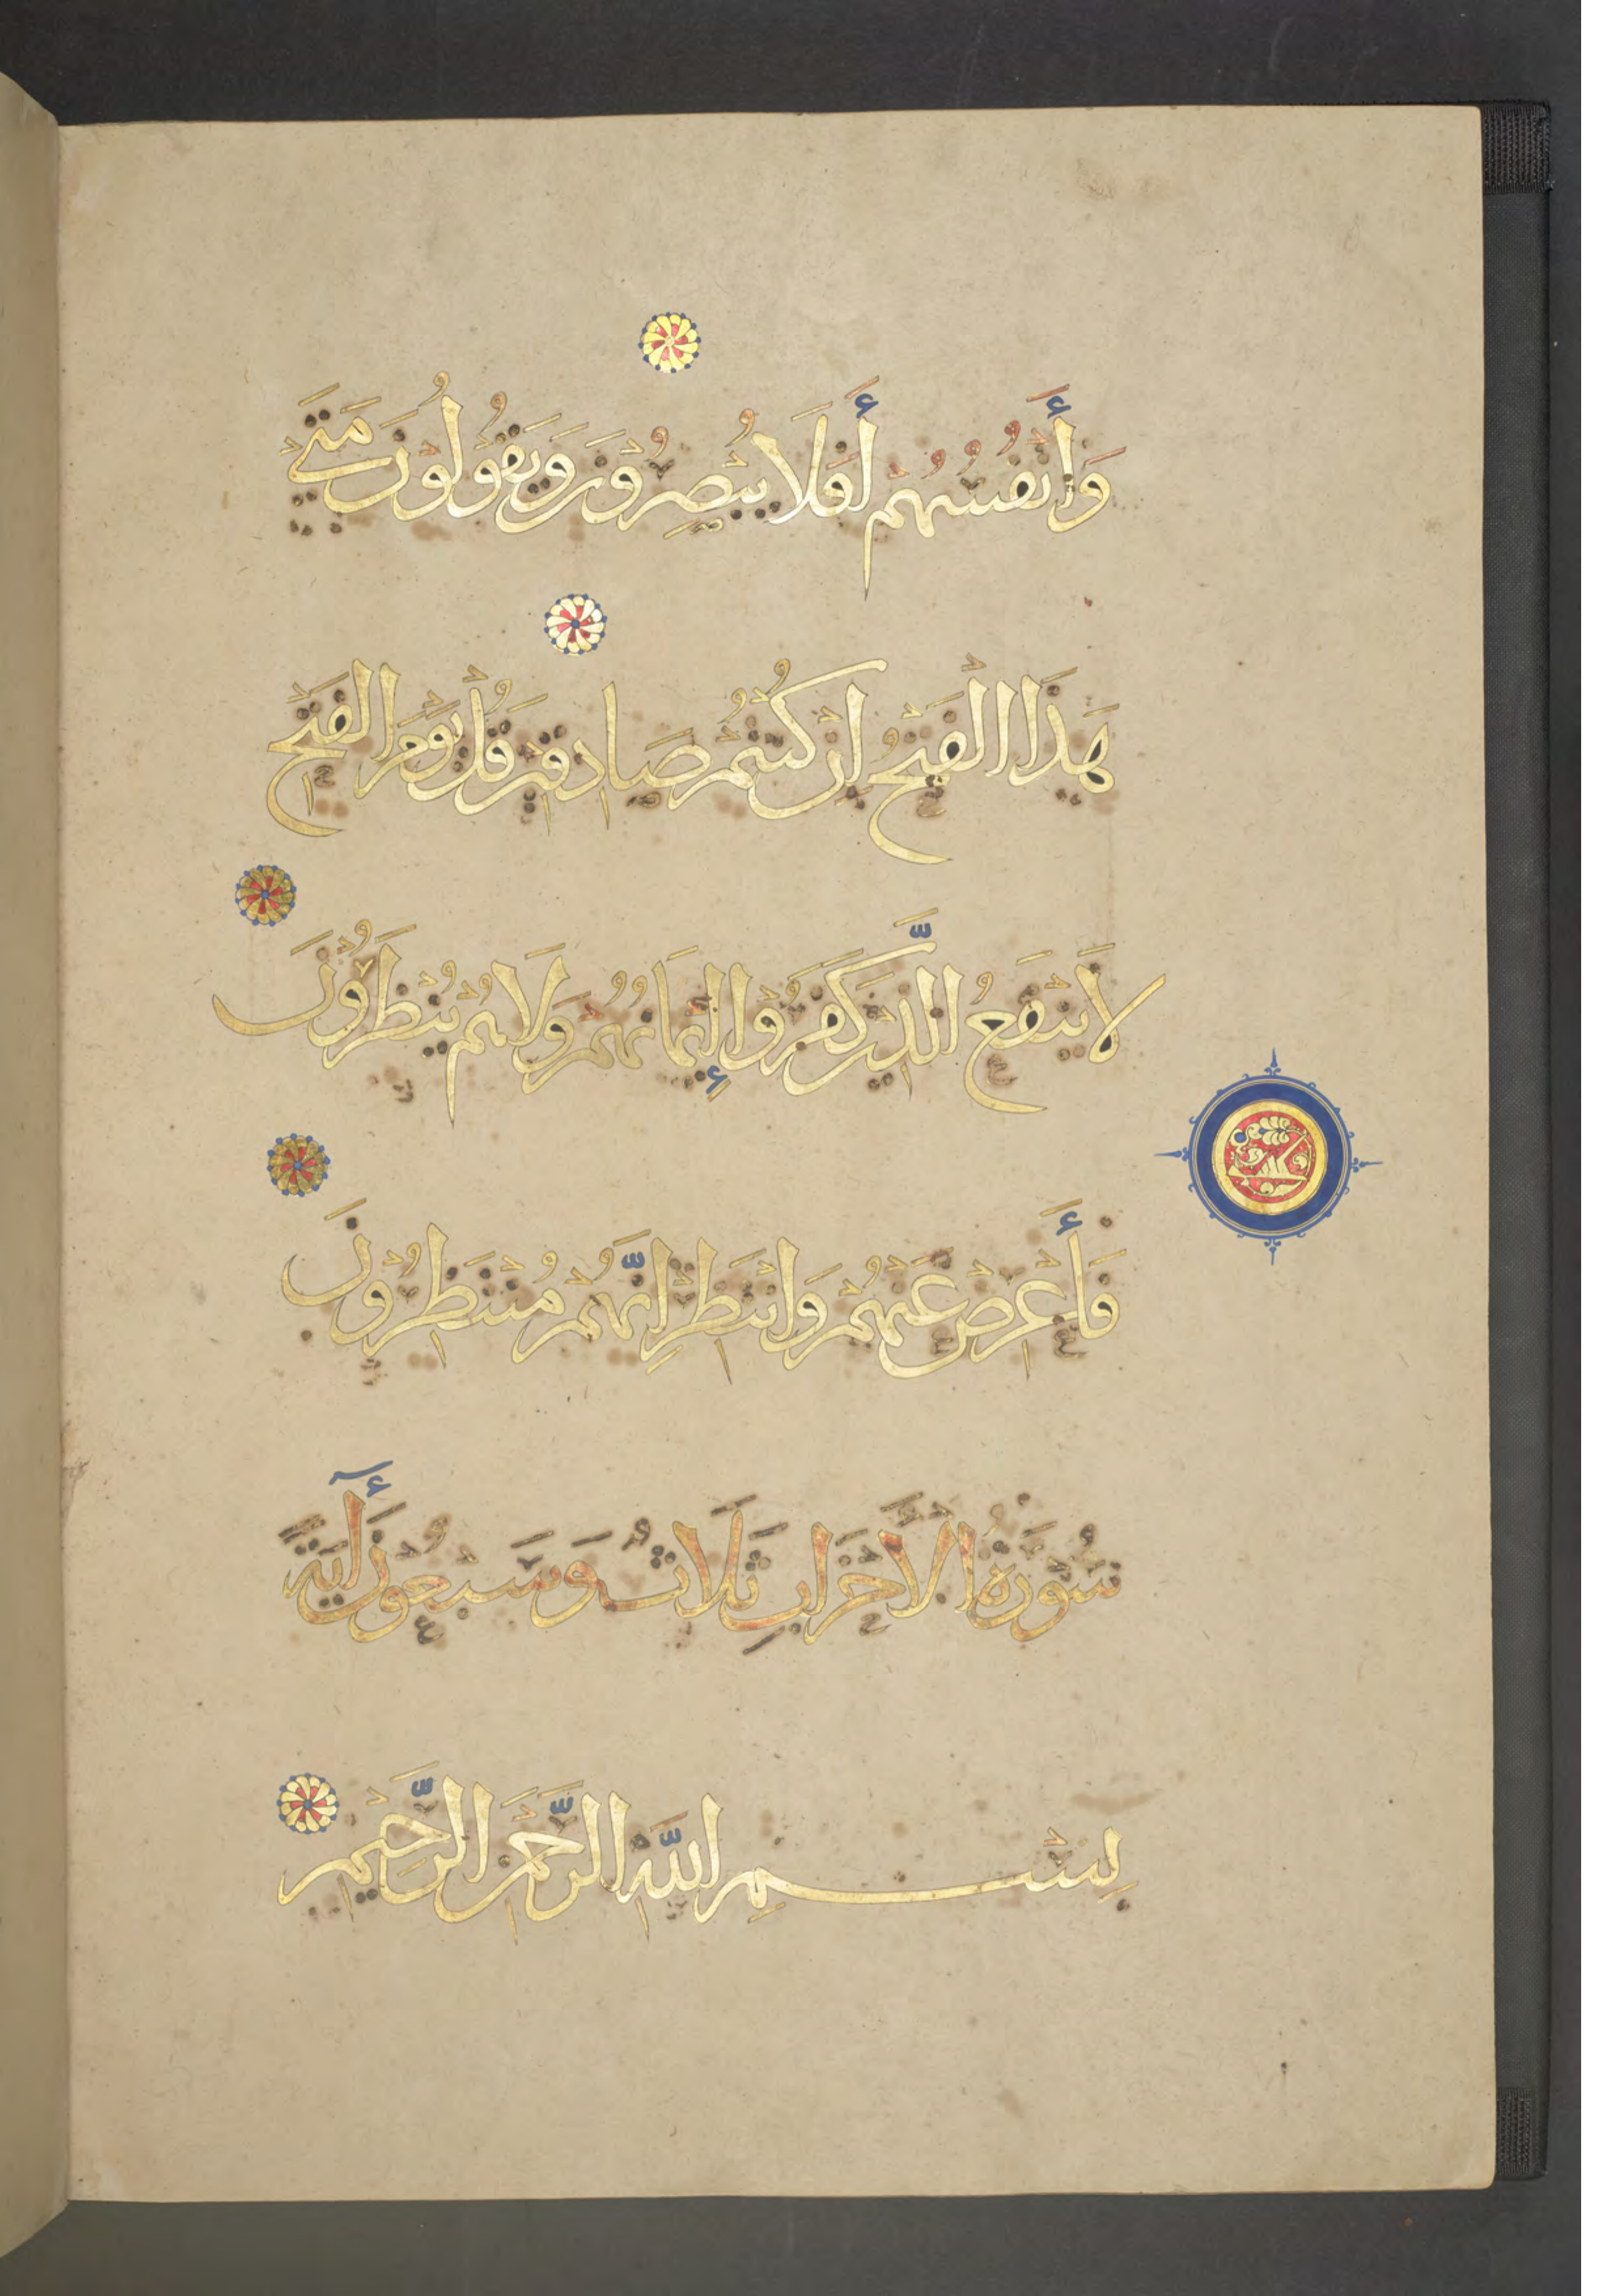 وَأَنْفُسُهُمْ أَفَلَا يُبْصِرُونَ وَيَقُولُونَ مَتَىٰ
هَذَا الْفَتْحُ إِنْ كُنْتُمْ صَادِقِينَ قُلْ يَوْمَ الْفَتْحِ
لَا يَنْفَعُ الَّذِينَ كَفَرُوا إِيمَانُهُمْ وَلَا هُمْ يُنْظَرُونَ
فَأَعْرِضْ عَنْهُمْ وَانْتَظِرْ إِنَّهُمْ مُنْتَظِرُونَ
سُورَةُ الْأَحْزَابِ ثَلَاثٌ وَسَبْعُونَ أٓيَةً
بِسْمِ اللَّهِ الرَّحْمَنِ الرَّحِيمِ